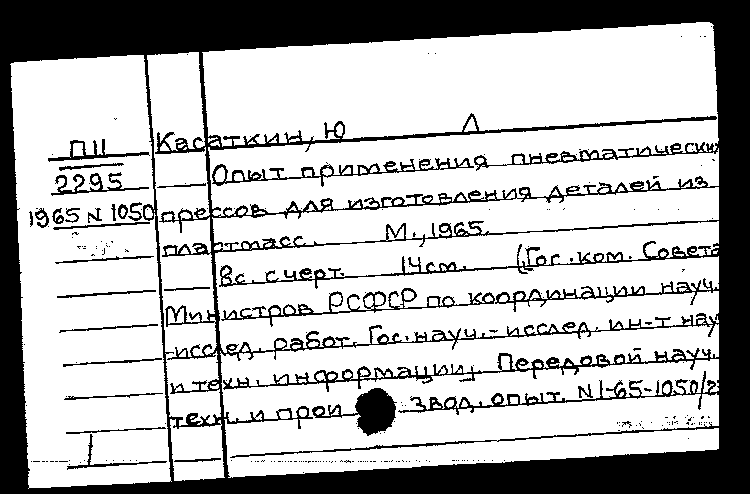 ПII Касаткин, Ю Л
2295 Опыт применения пневматически
1965 N 1050 прессов для изготовления деталей из
пластмасс. М., 1965.
8с. с черт. 14см. (Гос. ком. Совета
Министров РСФСР по координации науч.
-исслед. работ. Гос. науч.-исслед. ин-т нау
и техн. информации). Передовой науч.
техн. и прои звод. опыт. N 1-65-1050/2